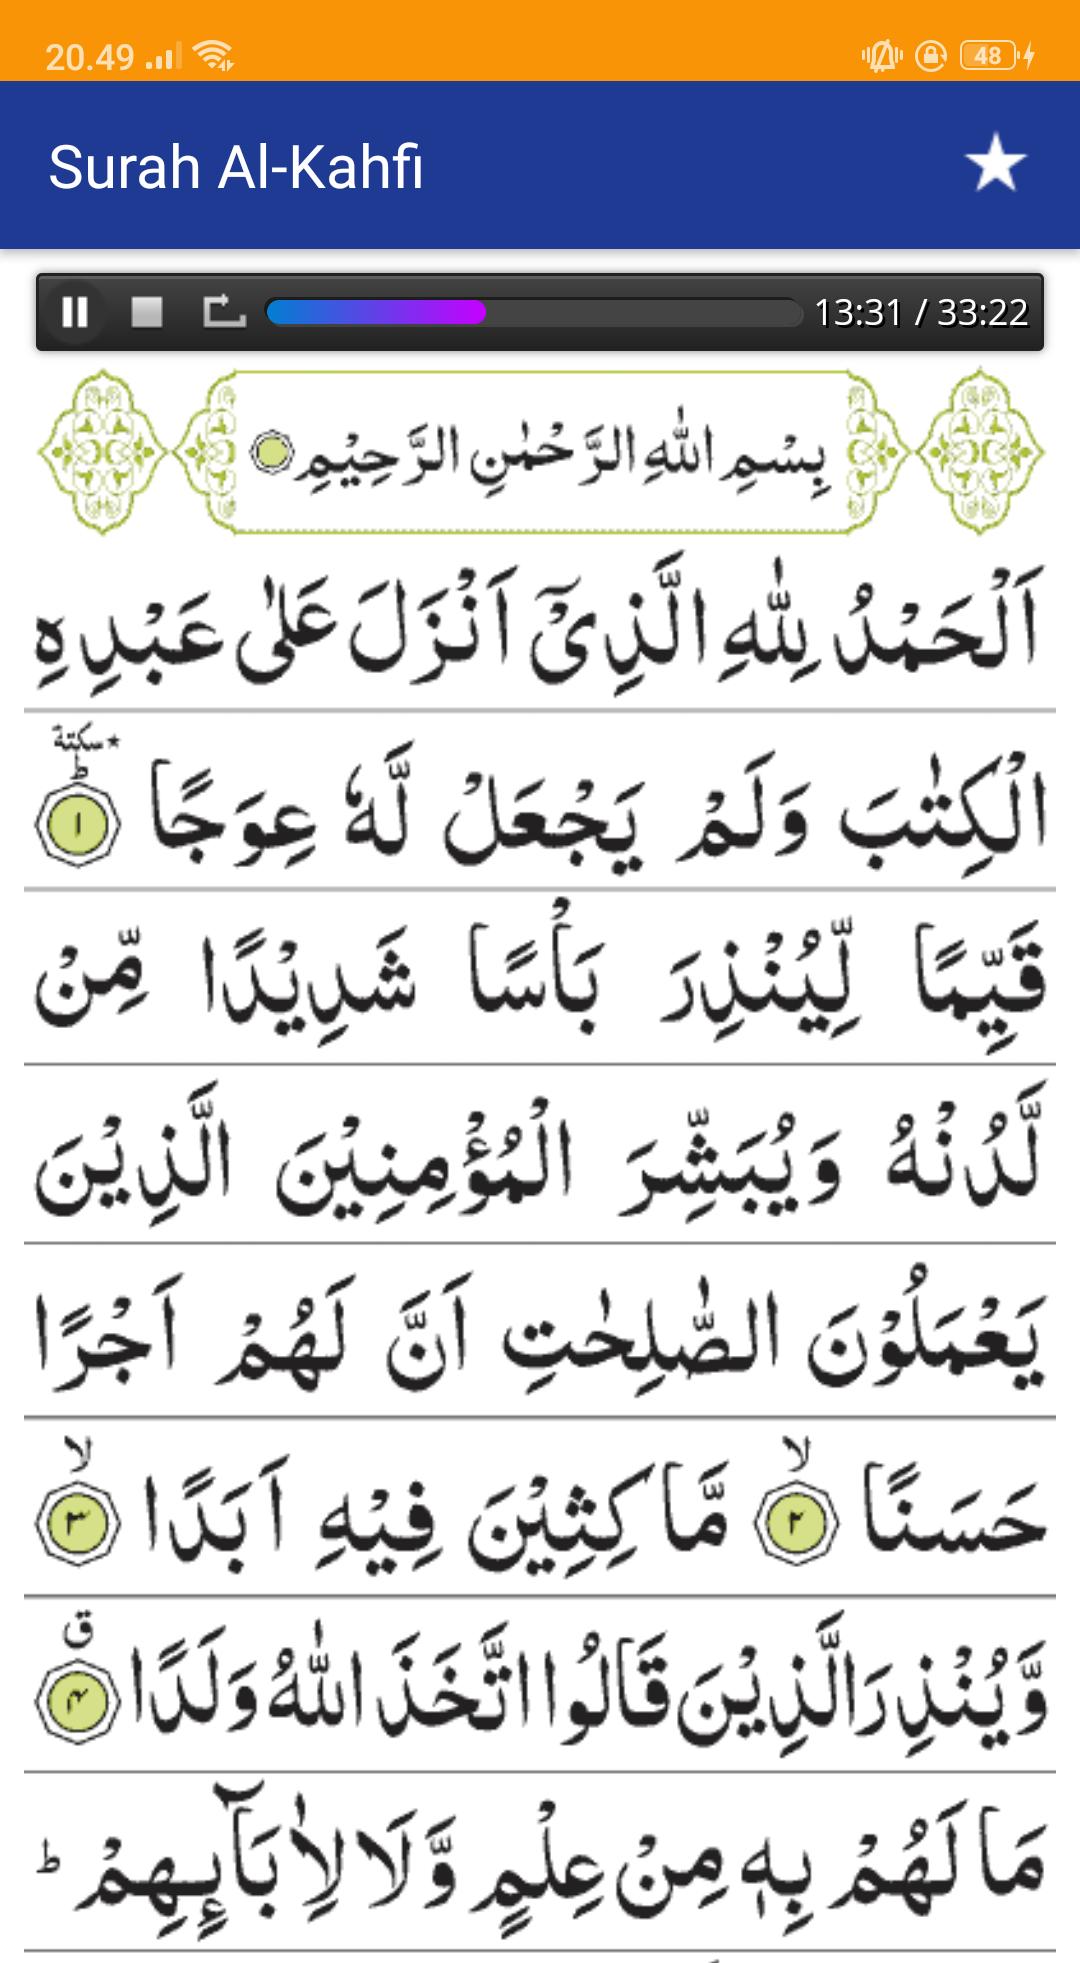 20.49
48
Surah Al-Kahfi
13:31 / 33:22
بِسْمِ اللّٰهِ الرَّحْمٰنِ الرَّحِيْمِ
اَلْحَمْدُ لِلّٰهِ الَّذِيْٓ اَنْزَلَ عَلٰى عَبْدِهِ
الْكِتٰبَ وَلَمْ يَجْعَلْ لَّهٗ عِوَجًا ؕ ٭سكتة ١
قَيِّمًا لِّيُنْذِرَ بَاْسًا شَدِيْدًا مِّنْ
لَّدُنْهُ وَيُبَشِّرَ الْمُؤْمِنِيْنَ الَّذِيْنَ
يَعْمَلُوْنَ الصّٰلِحٰتِ اَنَّ لَهُمْ اَجْرًا
حَسَنًا ۙ ٢ مَّاكِثِيْنَ فِيْهِ اَبَدًا ۙ ٣
وَّيُنْذِرَ الَّذِيْنَ قَالُوا اتَّخَذَ اللّٰهُ وَلَدًا ق ۴
مَا لَهُمْ بِهٖ مِنْ عِلْمٍ وَّلَا لِاٰبَآىِٕهِمْ ؕ